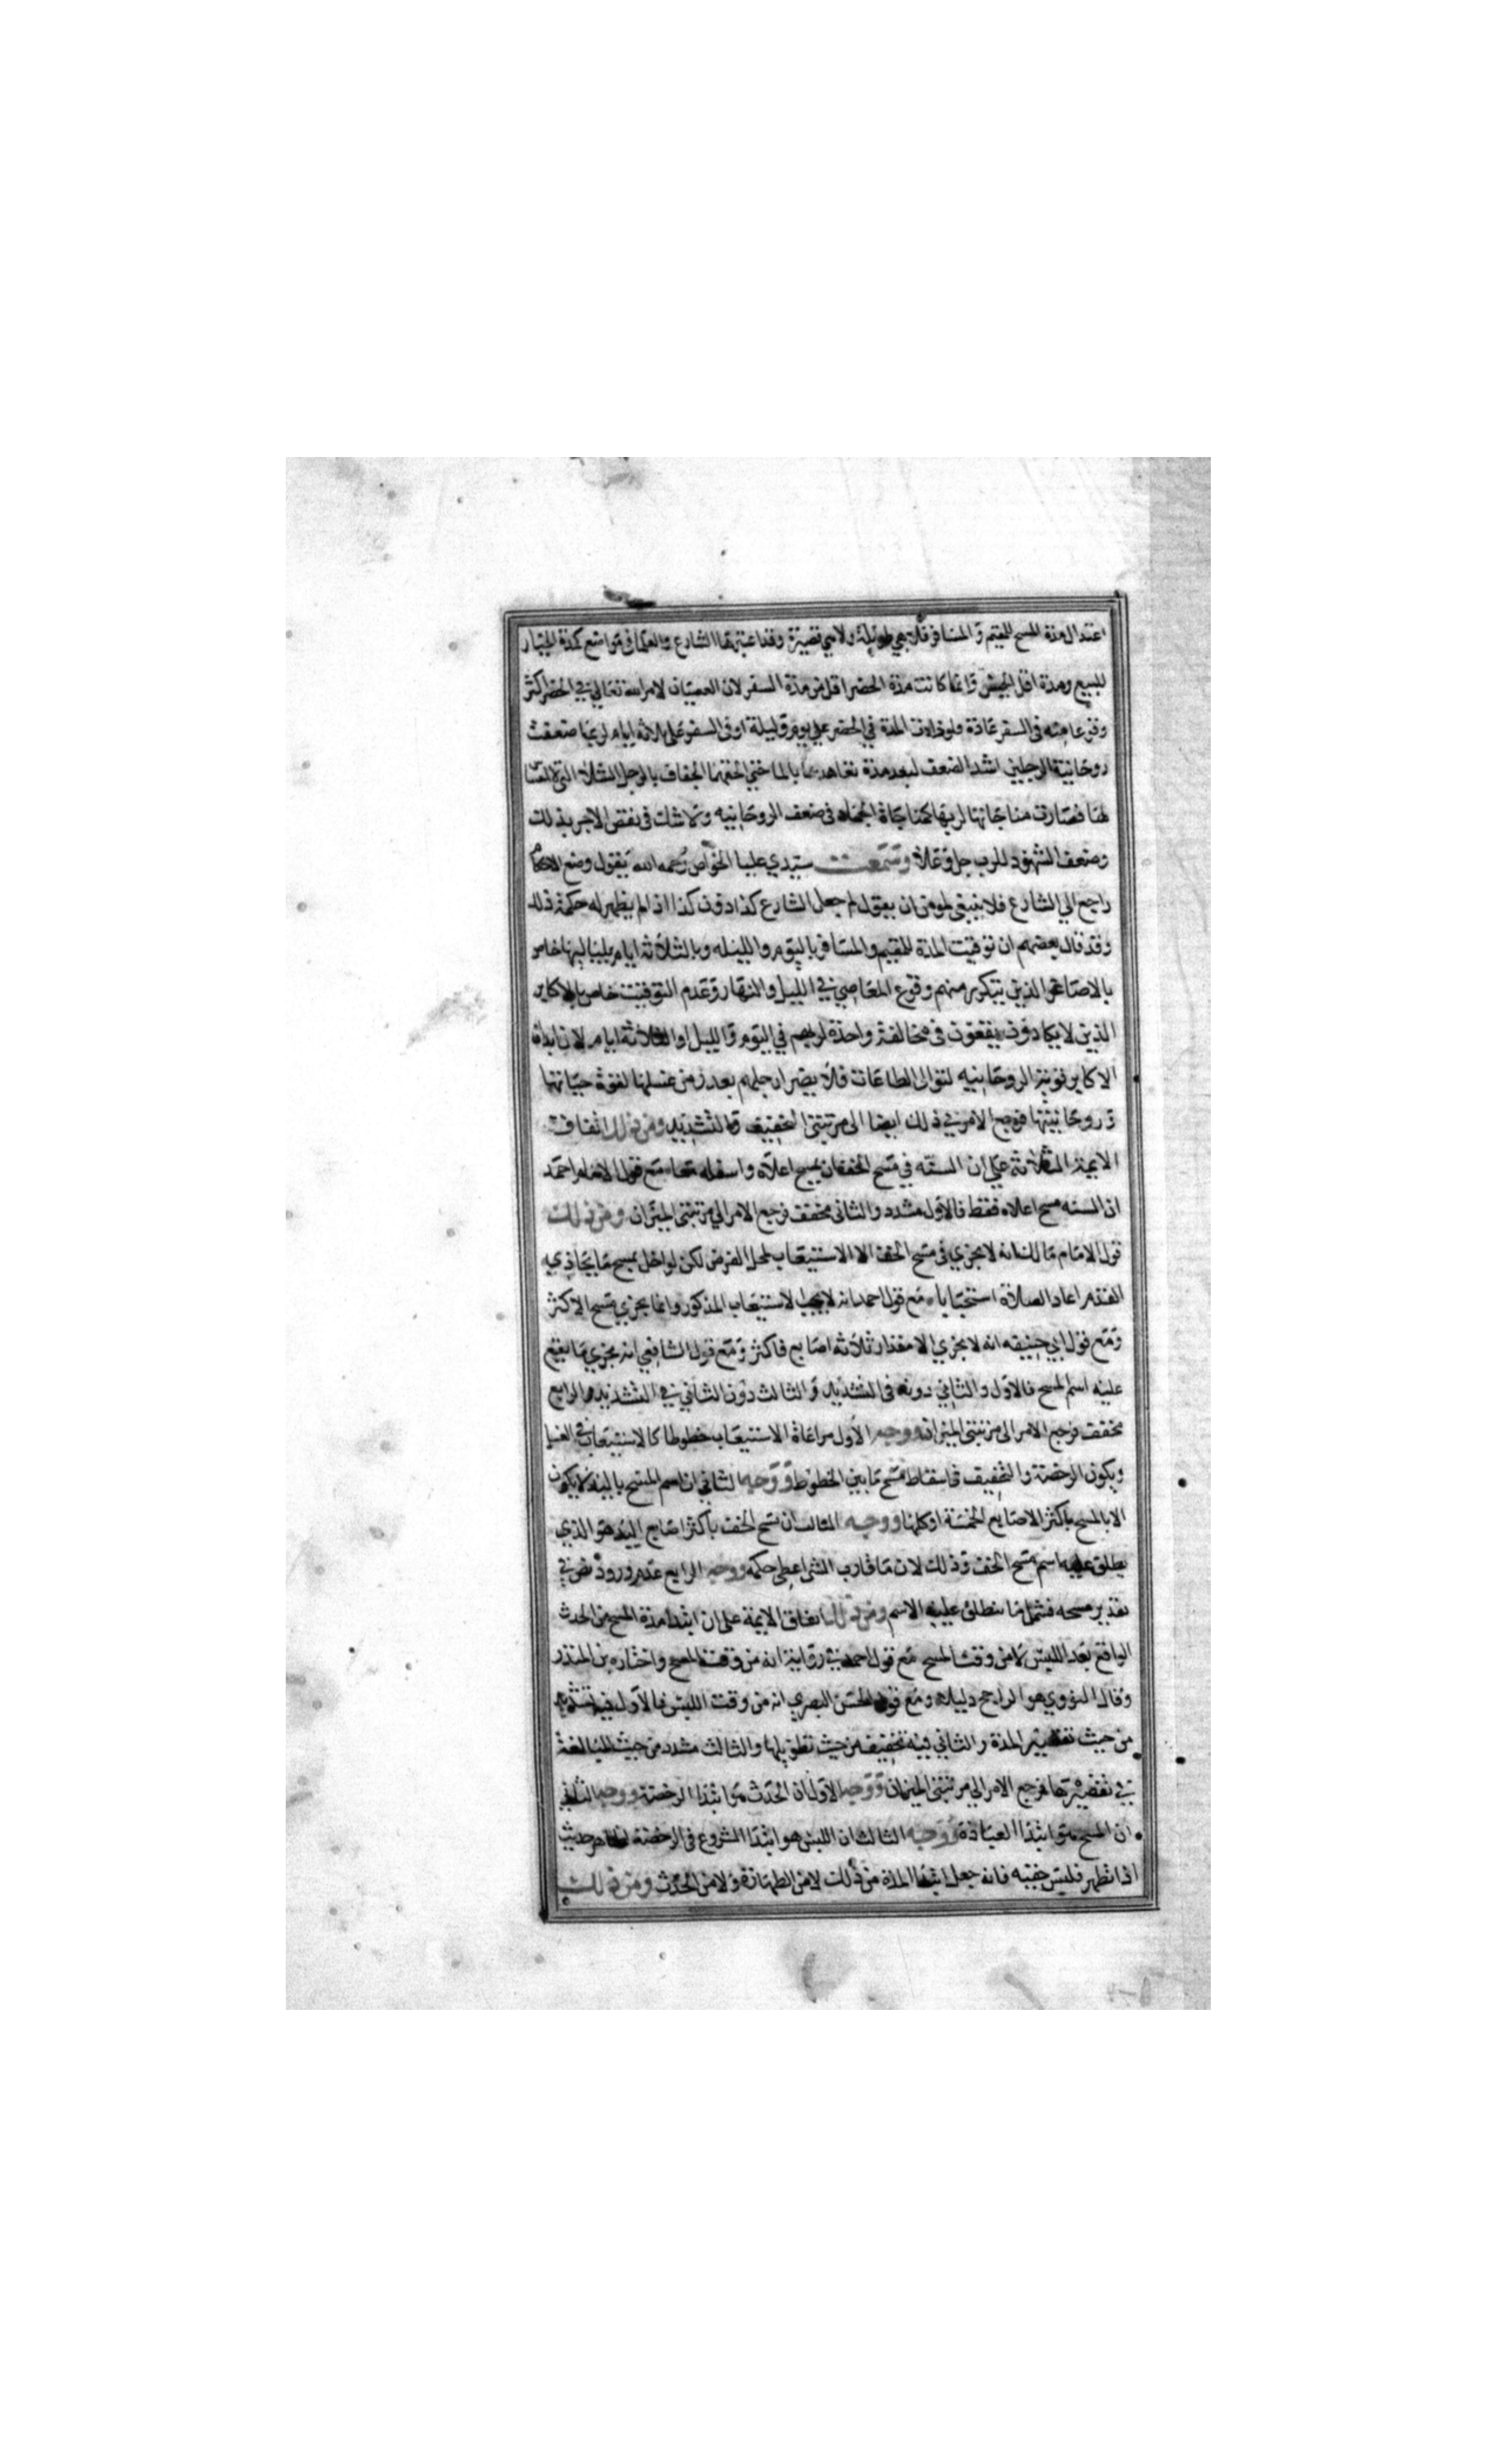 اعتدال مدة المسح للمقيم والمسافر فلا هي طويلة ولا هي قصيرة وقد اعتبرها الشارع والعلما في مواضع كمدة الخيار
للبيع ومدة اقل الحيض وانما كانت مدة الحضر اقل من مدة السفر لان العصيان لامر الله تعالي في الحضر اكثر
وقوعا منه في السفر عادة ولو زادت المدة في الحضر علي يوم وليلة او في السفر علي ثلاثة ايام لربما ضعفت
روحانية الرجلين اشد الضعف لبعد مدة تعاهدهما بالما حتي الحقهما الجفاف بالرجل الشلا التي لا
لها فصارت مناجاتها لربها كمناجاة الجماد في ضعف الروحانيه ولا شك في نقص الاجر بذلك
وضعف الشهود للرب جل وعلا وسمعت سيدي عليا الخواص رحمه الله يقول وضع الاحكام
راجع الي الشارع فلا ينبغي لمومن ان يقول لم جعل الشارع كذا دون كذا اذا لم يظهر له حكمة ذلك
وقد قال بعضهم ان توقيت المدة للمقيم والمسافر باليوم والليله وبالثلاثة ايام بلياليها خاص
بالاصاغر الذين يتكرر منهم وقوع المعاصي في الليل والنهار وعدم التوقيت خاص بالاكابر
الذين لا يكادون يقعون في مخالفة واحدة لربهم في اليوم والليل او الثلاثة ايام لان ابدان
الاكابر قوية الروحانيه لتوالي الطاعات فلا يضر ارجلهم بعد زمن غسلها لقوة حياتها
وروحانيتها فرجع الامر في ذلك ايضا الي مرتبتي التخفيف والتشديد ومن ذلك اتفاق
الايمة الثلاثة علي ان السنه في مسح الخف ان يمسح اعلاه واسفله معا مع قول الامام احمد
ان السنه مسح اعلاه فقط فالاول مشدد والثاني مخفف فرجع الامر الي مرتبتي الميزان ومن ذلك
قول الامام مالك انه لا يجزي في مسح الخف الا الاستيعاب لمحل الفرض لكن لو اخل بمسح ما يحاذي به
القدم اعاد الصلاة استحبابا مع قول احمد انه لا يجب الاستيعاب المذكور وانما يجزي مسح الاكثر
ومع قول ابي حنيفه انه لا يجزي الا مقدار ثلاثة اصابع فاكثر ومع قول الشافعي انه يجزي ما يقع
عليه اسم المسح فالاول والثاني دونه في التشديد والثالث دون الثاني في التشديد والرابع
مخفف فرجع الامر الي مرتبتي الميزان ووجه الاول مراعاة الاستيعاب خطوطا كالاستيعاب في الغسل
ويكون الرخصة والتخفيف في اسقاط مسح ما بين الخطوط ووجه الثاني ان اسم المسح باليد لا يكون
الا بالمسح باكثر الاصابع الخمسة او كلها ووجه الثالث ان مسح الخف باكثر اصابع اليد هو الذي
يطلق عليه اسم مسح الخف وذلك لان ما قارب الشي اعطي حكمه ووجه الرابع عدم ورود نص في
تقدير مسحه فشمل ما ينطلق عليه الاسم ومن ذلك اتفاق الايمة علي ان ابتدا مدة المسح من الحدث
الواقع بعد اللبس لا من وقت المسح مع قول احمد في رواية انه من وقت المسح واختاره بن المنذر
وقال النووي هو الراجح دليلا ومع قول الحسن البصري انه من وقت اللبس فالاول فيه تشديد
من حيث تقصير المدة والثاني فيه تخفيف من حيث تطويلها والثالث مشدد من حيث المبالغة
في تقصيرها فرجع الامر الي مرتبتي الميزان ووجه الاول ان الحدث هو ابتدا الرخصة ووجه الثاني
ان المسح هو ابتدا العبادة ووجه الثالث ان اللبس هو ابتدا الشروع في الرخصة لظاهر حديث
اذا تطهر فلبس خفيه فانه جعل ابتدا المدة من ذلك لا من الطهارة ولا من الحدث ومن ذلك